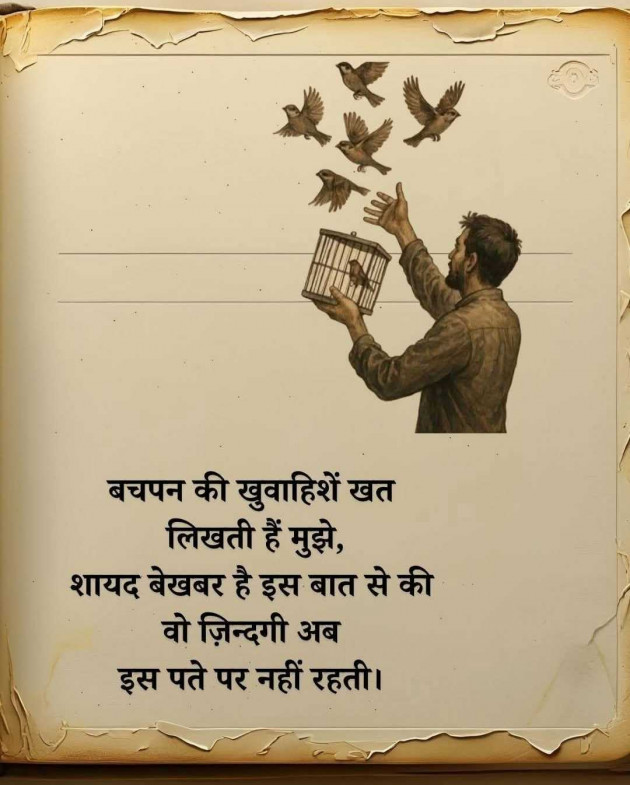 बचपन की खुवाहिशें खत
लिखती हैं मुझे,
शायद बेखबर है इस बात से की
वो ज़िन्दगी अब
इस पते पर नहीं रहती।